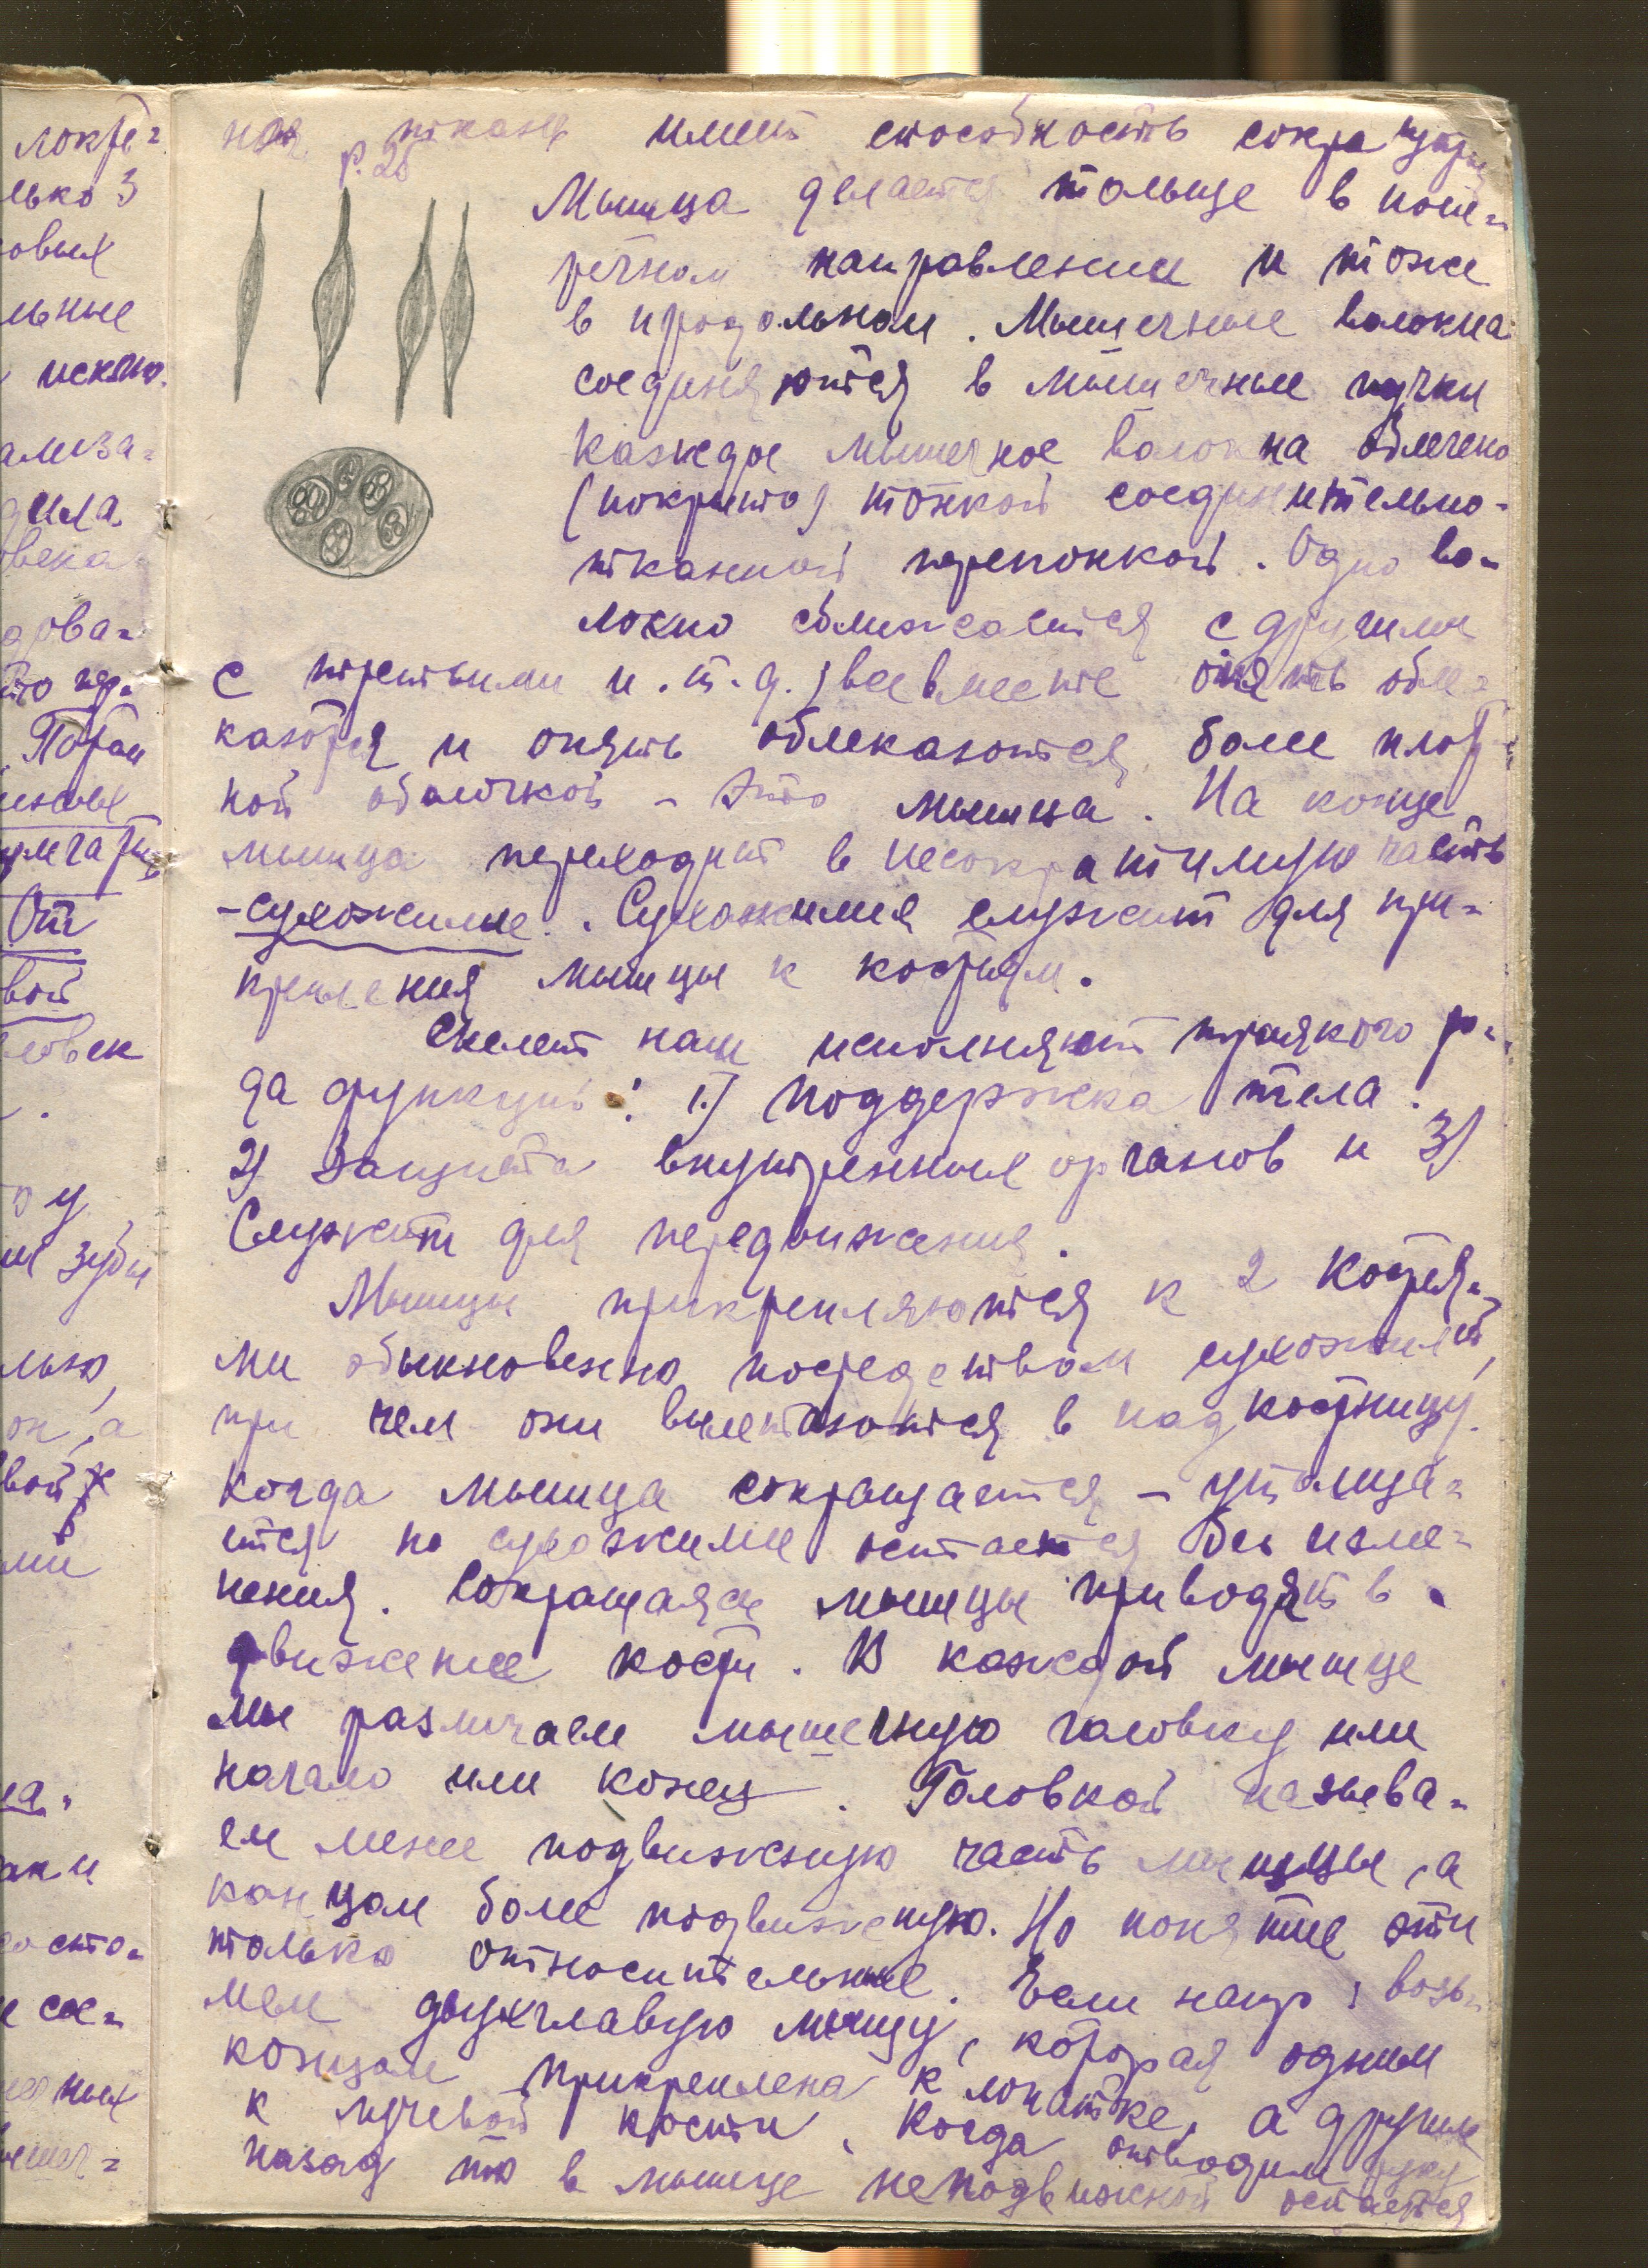 локре-
лько 3
овых
льные
ализа-
овека
Потом
От
вой
ловек
зубы
лью,
он, а
вой
ми
на.
аки
ная ткань имеет способность сокращаться
р. 25
Мышца делается тольще в попе-
речном направлении и тоже
в продольном. Мышечные волокна
соединяются в мышечные пучки
Каждое мышечное волокна облечено
(покрыто) тонкой соединительно-
тканной перепонкой. Одно во-
локно сближается с другими
с третьими и.т.д. все вместе опять обле-
каются и опять облекаются более плот-
ной оболочкой - это мышца. На конце
мышца переходит в несократимую часть
-сухожилие. Сухожилия служит для при-
крепления мышцы к костям.
Скелет наш исполняет троякого ро-
да функции: 1) поддержка тела.
2) Защита внутренних органов и 3)
Служит для передвижения.
Мышцы прикрепляются к 2 костя-
ми обыкновенно посредством сухожилий,
при чем они вплетаются в надкостницу.
Когда мышца сокращается - утолща-
ется но сухожилие остается без изме-
нения. Сокращаясь мышцы приводят в
движение кости. В каждой мышце
мы различаем мышечную головку или
начало или конец. Головкой называ-
ем менее подвижную часть мышцы, а
концом более подвижную. Но понятие эти
только относительные. Если напр: возь-
мем двухглавую мышцу, которая одним
концом прикреплена к лопатке, а другим
к лучевой кости. Когда отводим руку
назад то в мышце неподвижной остается